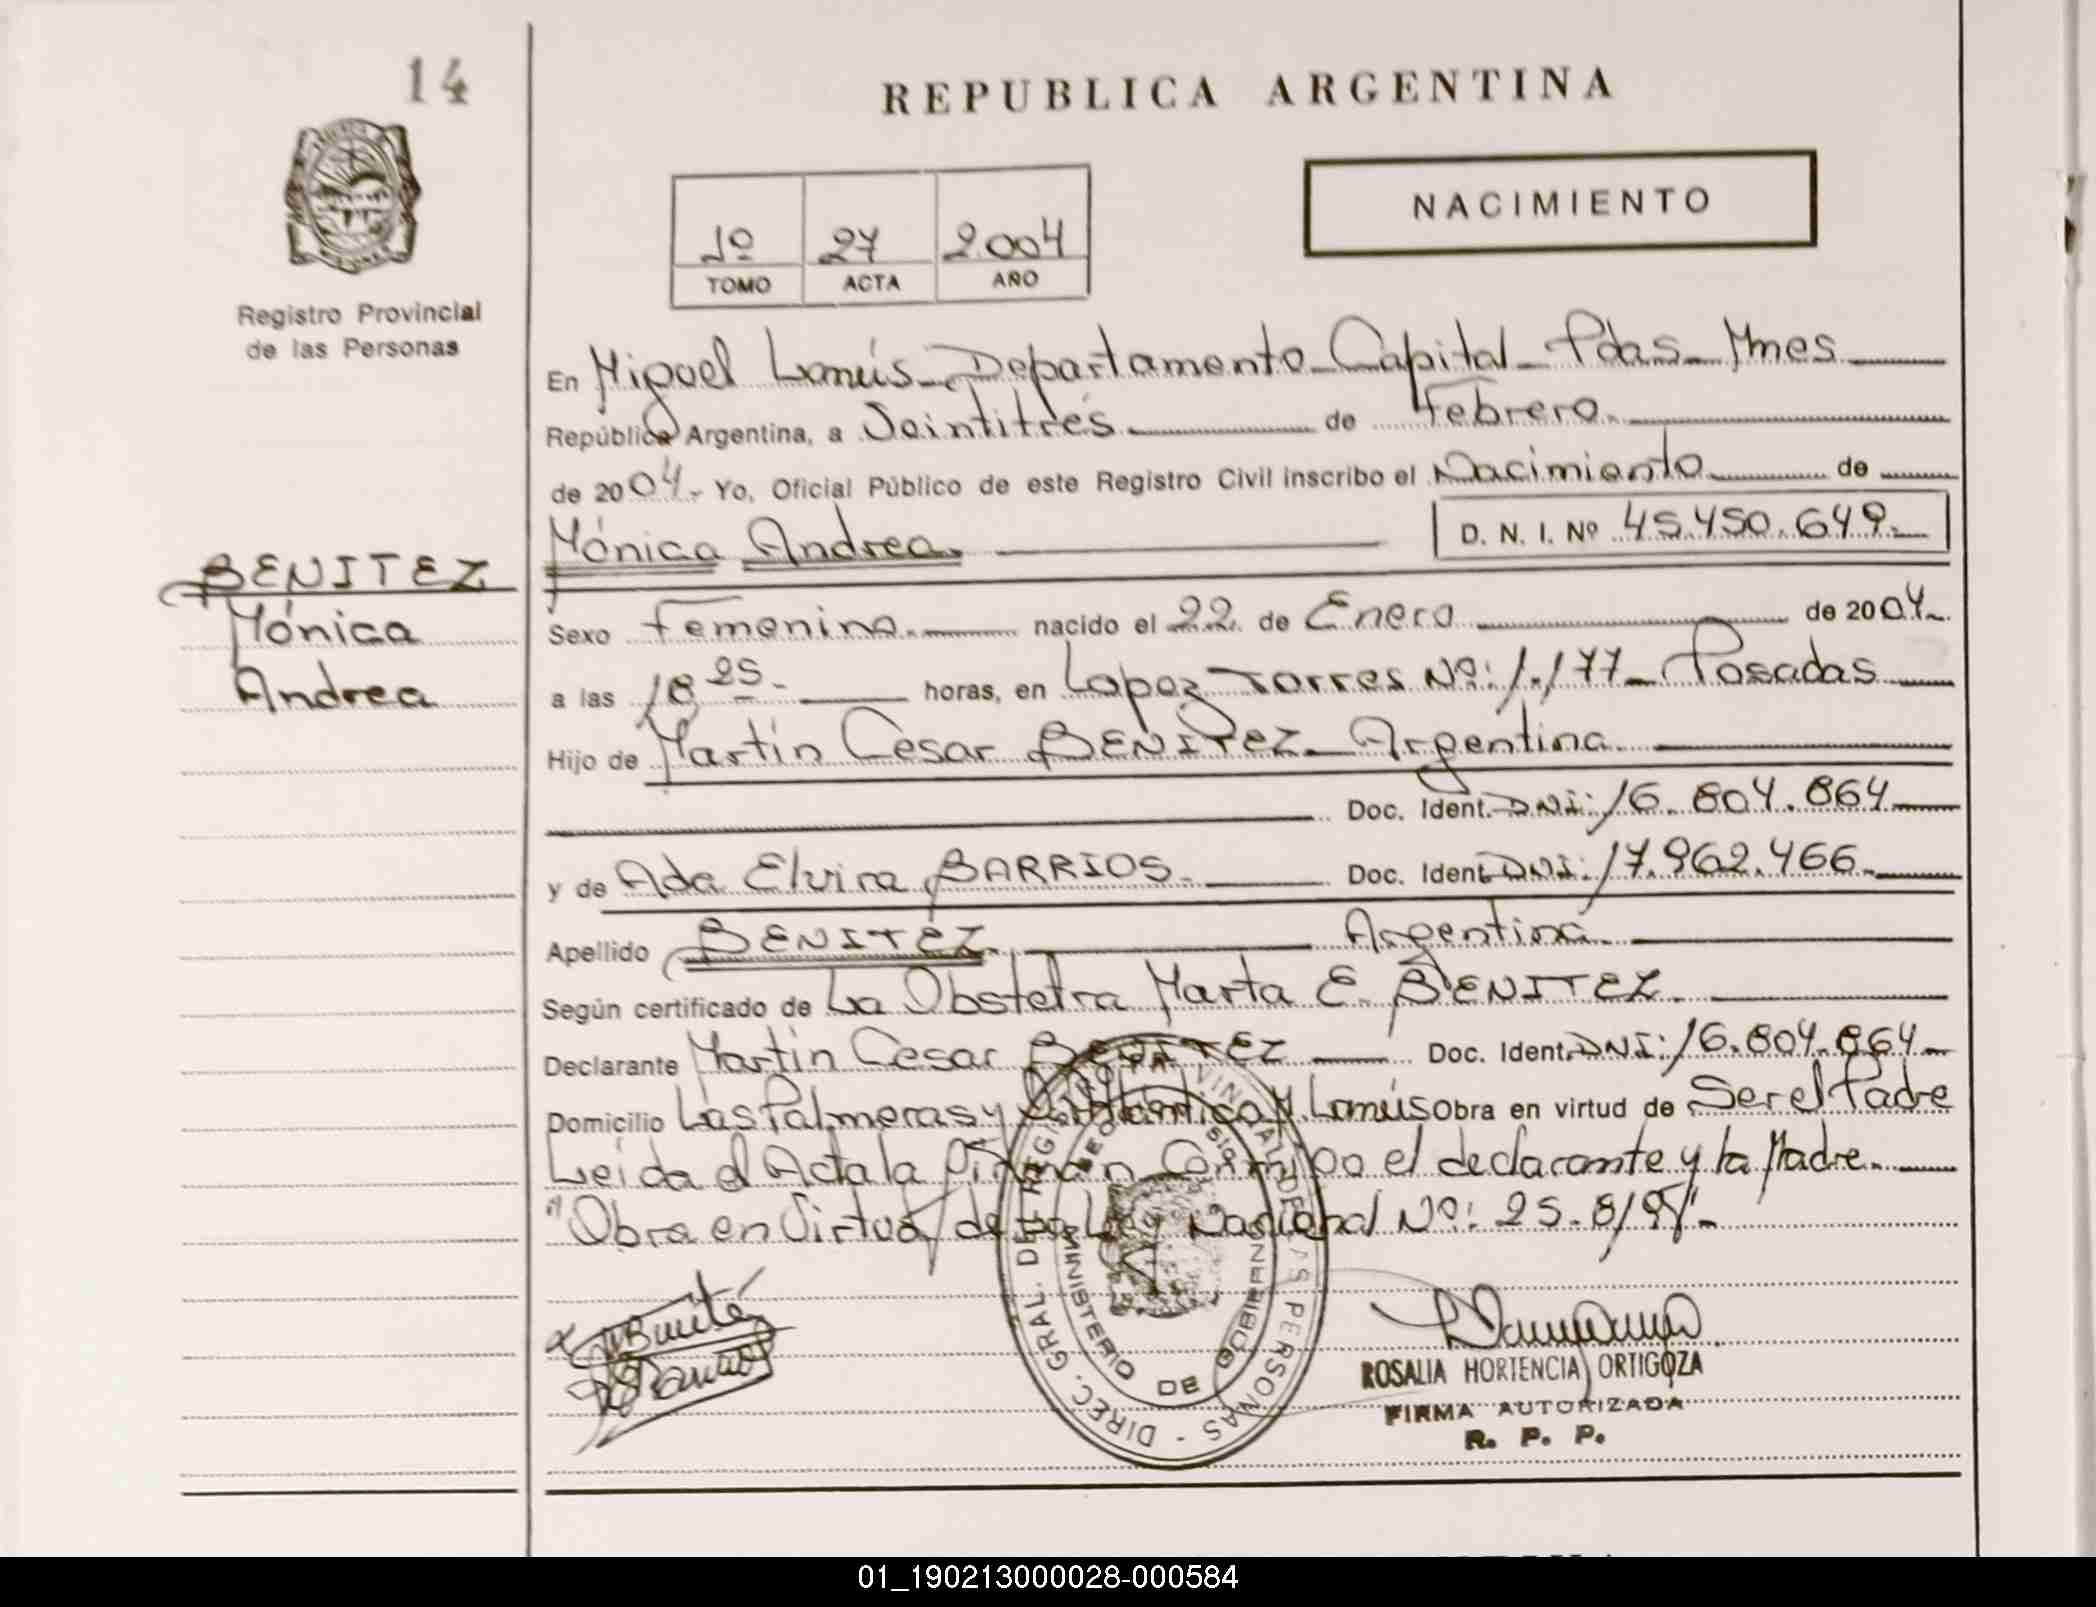 14
REPUBLICA ARGENTINA
NACIMIENTO
1º 27 2.004
TOMO ACTA AÑO
Registro Provincial
de las Personas
En Miguel Lanús-Departamento-Capital-Pdas-Mnes
República Argentina, a Veintitrés de Febrero.
de 2004.- Yo, Oficial Público de este Registro Civil inscribo el Nacimiento de
Mónica Andrea. D. N. I. Nº 45.450.649.-
BENITEZ
Mónica
Andrea
Sexo Femenino. nacido el 22 de Enero de 2004.-
a las 18 25.- horas, en Lopez Torres Nº: 1.177- Posadas
Hijo de Martín Cesar BENITEZ- Argentina
Doc. Ident. DNI: 16.804.864
y de Ada Elvira BARRIOS. Doc. Ident. DNI: 17.962.466.
Apellido BENITEZ. Argentina
Según certificado de La Obstetra Marta E. BENITEZ
Declarante Martin Cesar BENITEZ Doc. Ident. DNI: 16.804.864-
Domicilio Las Palmeras y M. Lanús Obra en virtud de Ser el Padre
Leida el Acta la Firman Conmigo el declarante y la Madre.
"Obra en Virtud de la Ley Nacional Nº:
DIREC. GRAL. DE REGISTRO PROVINCIAL DE LAS PERSONAS -
MINISTERIO DE GOBIERNO
ROSALIA HORTENCIA ORTIGOZA
FIRMA AUTORIZADA
R. P. P.
01_190213000028-000584